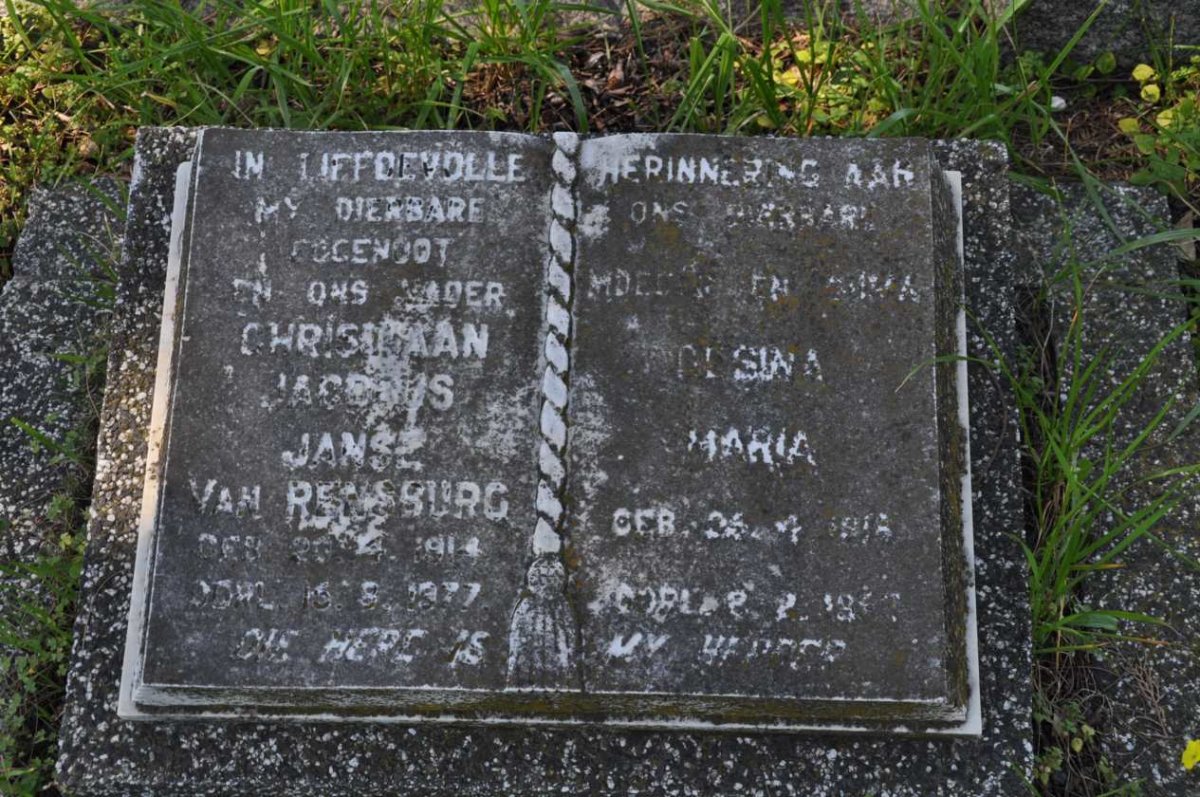 IN LIEFDEVOLLE
MY DIERBARE
EGGENOOT
EN ONS VADER
CHRISTIAAN
JACOBUS
JANSE
VAN RENSBURG
GEB. 20. 4. 1914
OORL. 16. 8. 1977.
DIE HERE IS
HERINNERING AAN
ONS DIERBARE
MOEDER EN OUMA
MARIA
GEB. 4. 1918
OORL. 2.
MY HERDER